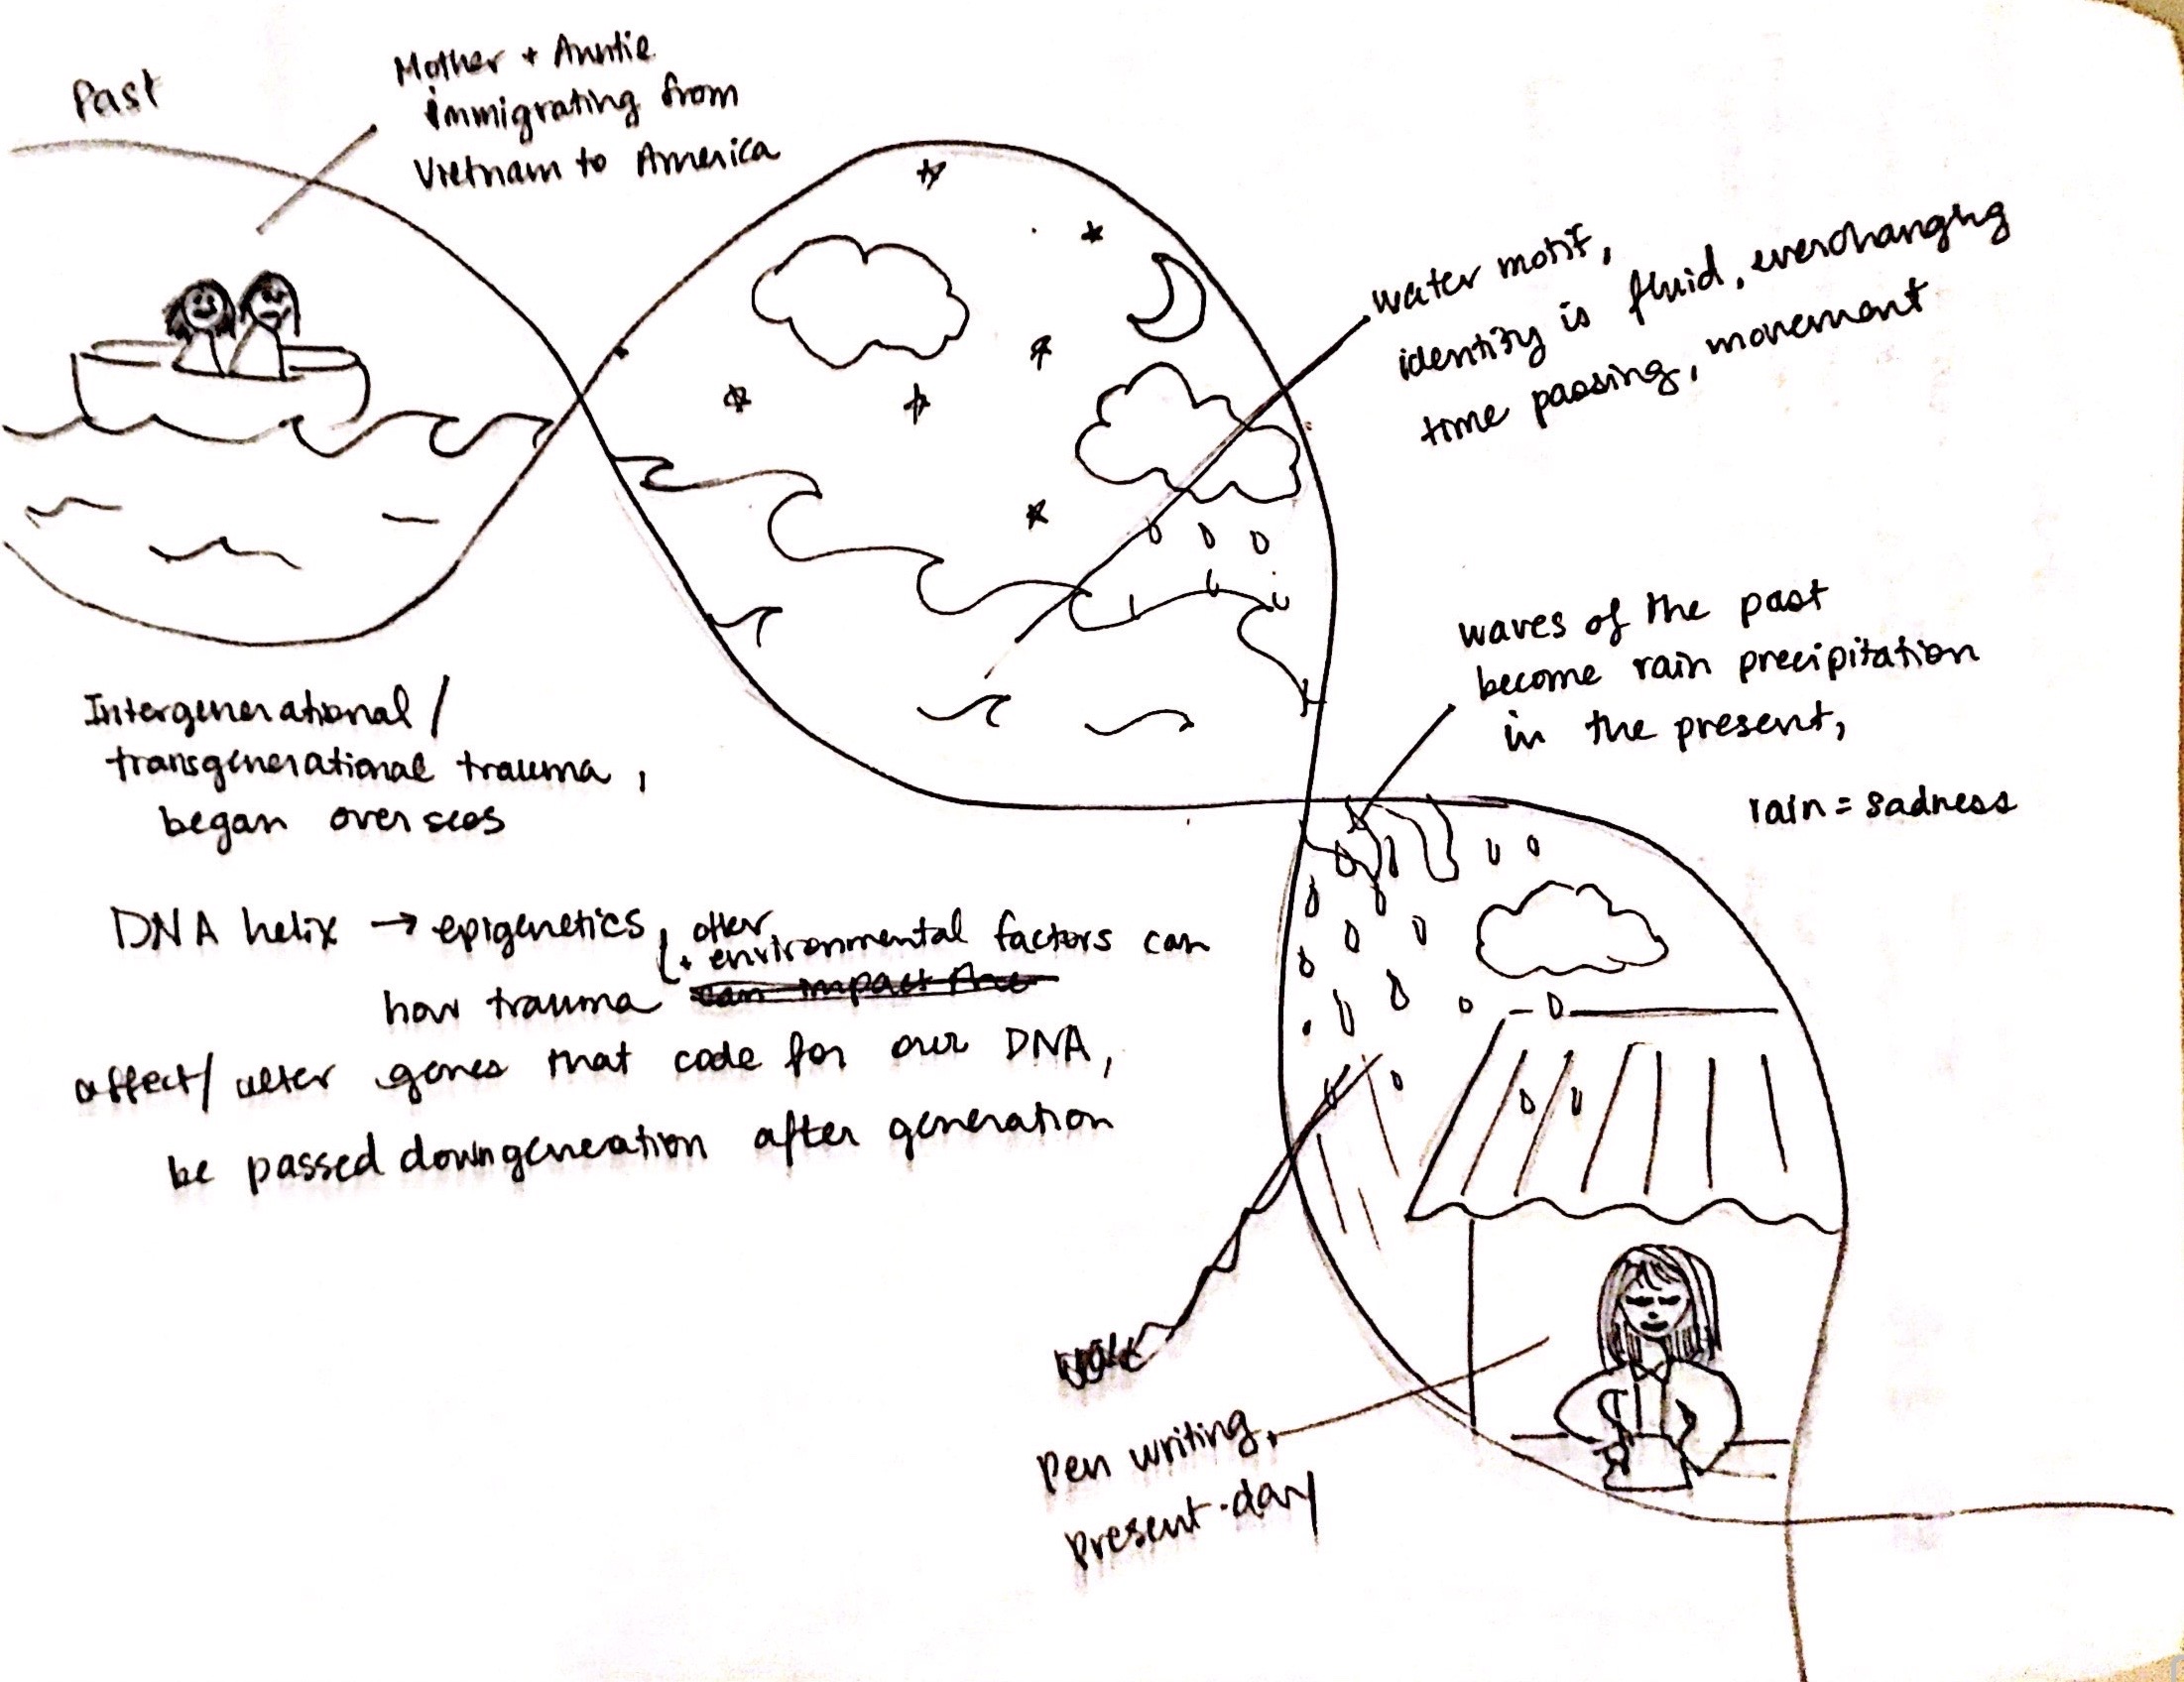 Past
Mother + Auntie
immigrating from
Vietnam to America
water motif,
identity is fluid, everchanging
time passing, movement
waves of the past
become rain precipitation
in the present,
rain = sadness
Intergenerational/
transgenerational trauma,
began overseas
DNA helix → epigenetics
+ other
environmental factors can
how trauma can impact the
affect/alter genes that code for our DNA,
be passed down geneation after generation
pen writing,
present-day